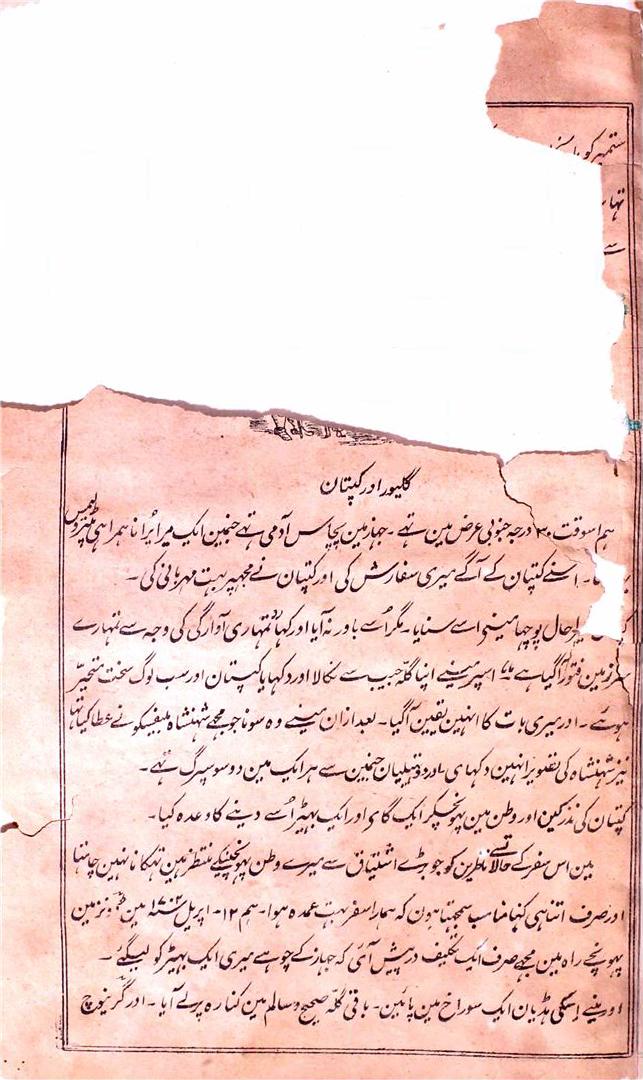 ستمبر کو
تہا
سے
گلیور اور کپتان
ہم اسوقت ۳۰ درجہ جنوبی عرض مین تہے۔ جہاز مین پچاس آدمی تہے جنمین ایک میرا پُرانا ہمراہی پیٹر ولیمس
تہا۔ اسنے کپتان کے آگے میری سفارش کی اور کپتان نے مجھپر بہت مہربانی کی۔
حال پوچہا مینے اسے سنایا۔ مگر اُسے باور نہ آیا اور کہا تمہاری آوارگی کی وجہ سے تمہارے
سر مین فتور آگیا ہے اسپر مینے اپنا گلہ جیب سے نکالا اور دکہایا کپتان اور سب لوگ سخت متحیر
ہوئے۔ اور میری بات کا انہین یقین آگیا۔ بعد ازان مینے وہ سونا جو مجھے شہنشاہ بلیفسکو نے عطا کیا تہا
نیز شہنشاہ کی تصویر انہین دکہای اور دو تہیلیان جنمین سے ہر ایک مین دو سو سپرگ تہے۔
کپتان کی نذر کین اور وطن مین پہونچکر ایک گای اور ایک بہیڑ اُسے دینے کا وعدہ کیا۔
مین اس سفر کے حالات سے ناظرین کو جو بڑے اشتیاق سے میرے وطن پہونچنیکے منتظر ہین تہکانا نہین چاہتا
اور صرف اتنا ہی کہنا مناسب سمجہتا ہون کہ ہمارا سفر بہت عمدہ ہوا۔ ہم ۱۲۔ اپریل ۱۷۰۲ء مین ڈونز مین
پہونچے راہ مین مجھے صرف ایک تکلیف درپیش آئی کہ جہاز کے چوہے میری ایک بہیڑ کو لیگئے۔
اور مینے اسکی ہڈیان ایک سوراخ مین پائین۔ باقی گلہ صحیح و سالم مین کنارہ پر لے آیا۔ اور گرینوچ